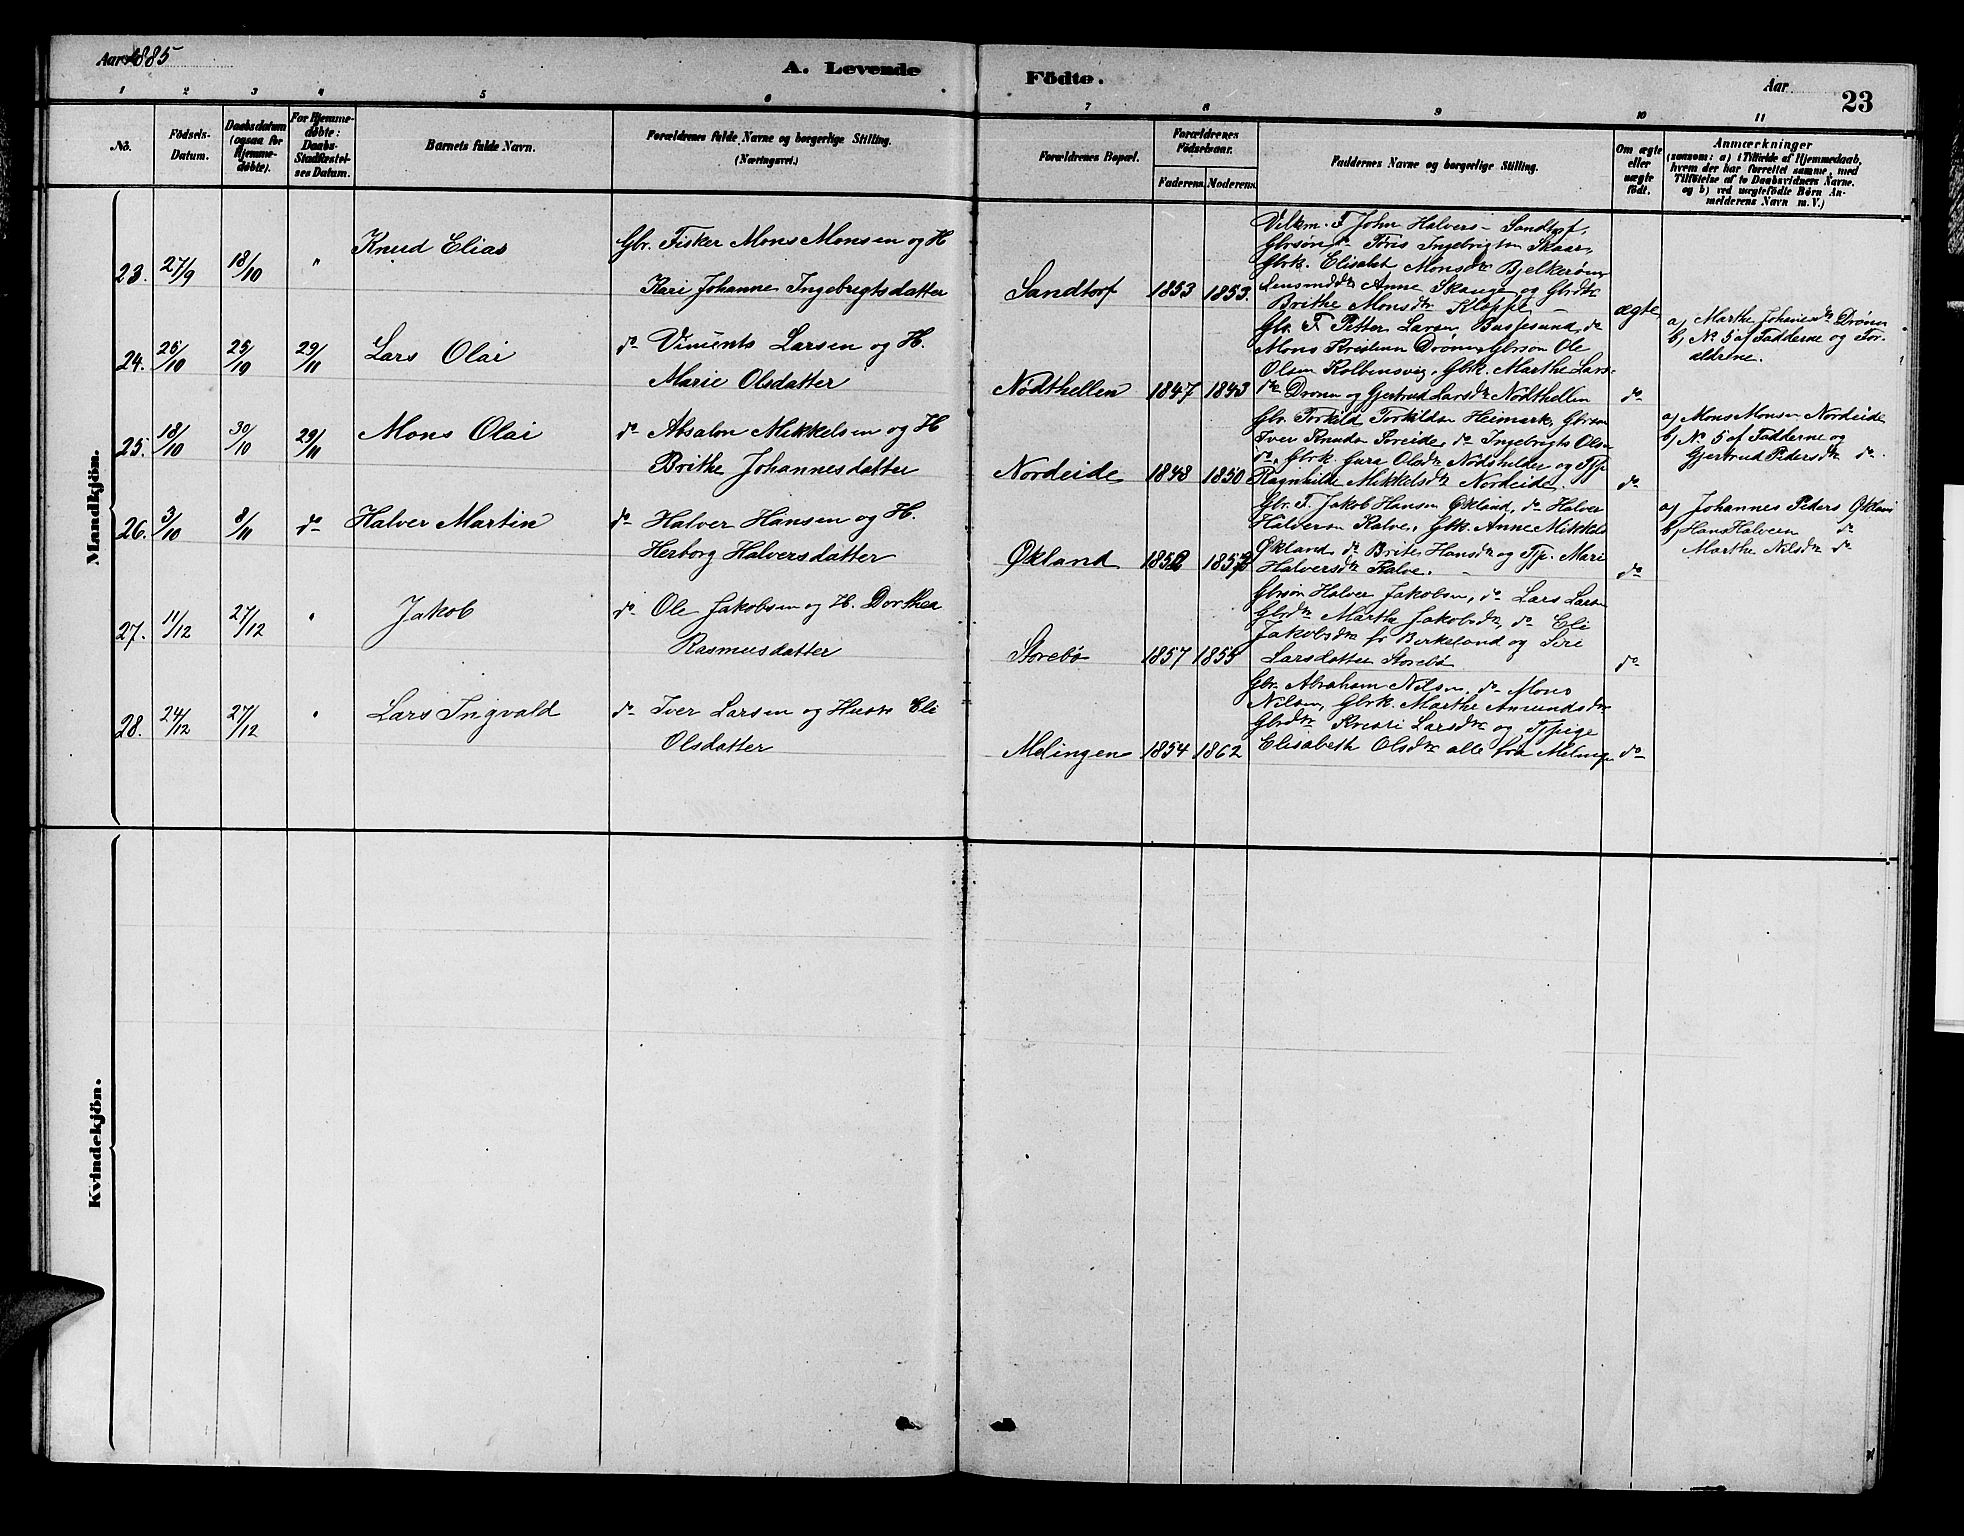 Aar 1885
A. Levende
Födte.
Aar
23
1 2 3 4 5 6 7 8 9 10 11
No.
Födsels-Datum.
Daabsdatum (ogsaa for Hjemmedøbte).
For Hjemmedøbte: Daabs-Stadfæstelses Datum.
Barnets fulde Navn.
Forældrenes fulde Navne og borgerlige Stilling.
(Næringsvei.)
Forældrenes Bopæl.
Forældrenes Födselsaar.
Faderens. Moderens.
Faddernes Navne og borgerlige Stilling.
Om ægte eller uægte födt.
Anmærkninger
(saasom: a) i Tilfælde af Hjemmedaab,
hvem der har forrettet samme, med
Tilföielse af to Daabsvidners Navne.
og b) ved uægtefödte Börn An-
melderens Navn m. V.)
Mandkjön.
23. 27/9 18/10 " Knud Elias
Gbr. Fisker Mons Monsen og H
Kari Johanne Ingebrigtsdatter
Sandtorf 1853 1853.
Vilkm. F John Halvers- Sandtorf,
Gbrsøn do Töris Ingebrigtsn Skaar,
Gbrk. Elisabet Monsdtr Bjelkerøen
Anne Skauge og Gbrdtr
Brithe Monsdtr Kloppe
ægte
24. 25/10 29/11 Lars Olai
do Larsen og H.
Marie Olsdatter
Nödthellen 1847 1843
Gbr. F. Petter Larsen Bussesund, do
Mons Kristiansn Drönen, Gbrsøn Ole
Olsen Kolbensvig, Gbrk. Marthe Lars-
dtr Drönen og Gjertrud Larsdtr Nödthellen
do
a) Marthe Johannesdtr Drönen
b) No 5 af Fadderne og For-
ælderne.
25. 18/10 30/10 29/11 Mons Olai
do Absalon Mikkelsen og H
Brithe Johannesdatter
Nordeide 1848 1850
Gbr. Torkild Torkildsen Heimark, Gbrsøn
Iver Knudsn Søreide, do Ingebrigt Olsn
do, Gbrk. Gura Olsdtr og Tjp.
Ragnhilde Mikkelsdtr Nordeide.
do
a) Mons Monsen Nordeide
b) No 5 af Fadderne og
Gjertrud Pedersdtr do
26. 3/10 8/11 do Halver Martin
do Halver Hansen og H.
Herborg Halversdatter
Økland
Gbr. F. Jakob Hansen Økland, do Halver
Halversn Kalve, Gbk. Anne Mikkels
Økland, do Brite Hansdtr og Tjp. Mari
Halversdtr Kalve.
do
a) Johannes Peders Økland
b) Hans Halversn do
Marthe Nilsdtr do
27. 11/12 27/12 " Jakob
do Ole Jakobsen og H. Dorthea
Rasmusdatter
Storebø 1857 1855
Gbrsøn Halver Jakobsen, do Lars Larsn
Gbrdtr Marthe Jakobsdtr, do Eli
Jakobsdtr fr Birkeland og Siri
Larsdatter Storebø
do
28. 24/12 27/12 " Lars Ingvald
do Iver Larsen og Hustr Eli
Olsdatter
Melingen 1854 1862
Gbr. Abraham Nilsen, do Mons
Nilsen, Gbrk. Marthe Amundsdtr
Gbrdtr Larsdtr og Tjpige
Elisabeth Olsdtr alle fra Melingen
do
Kvindekjön.